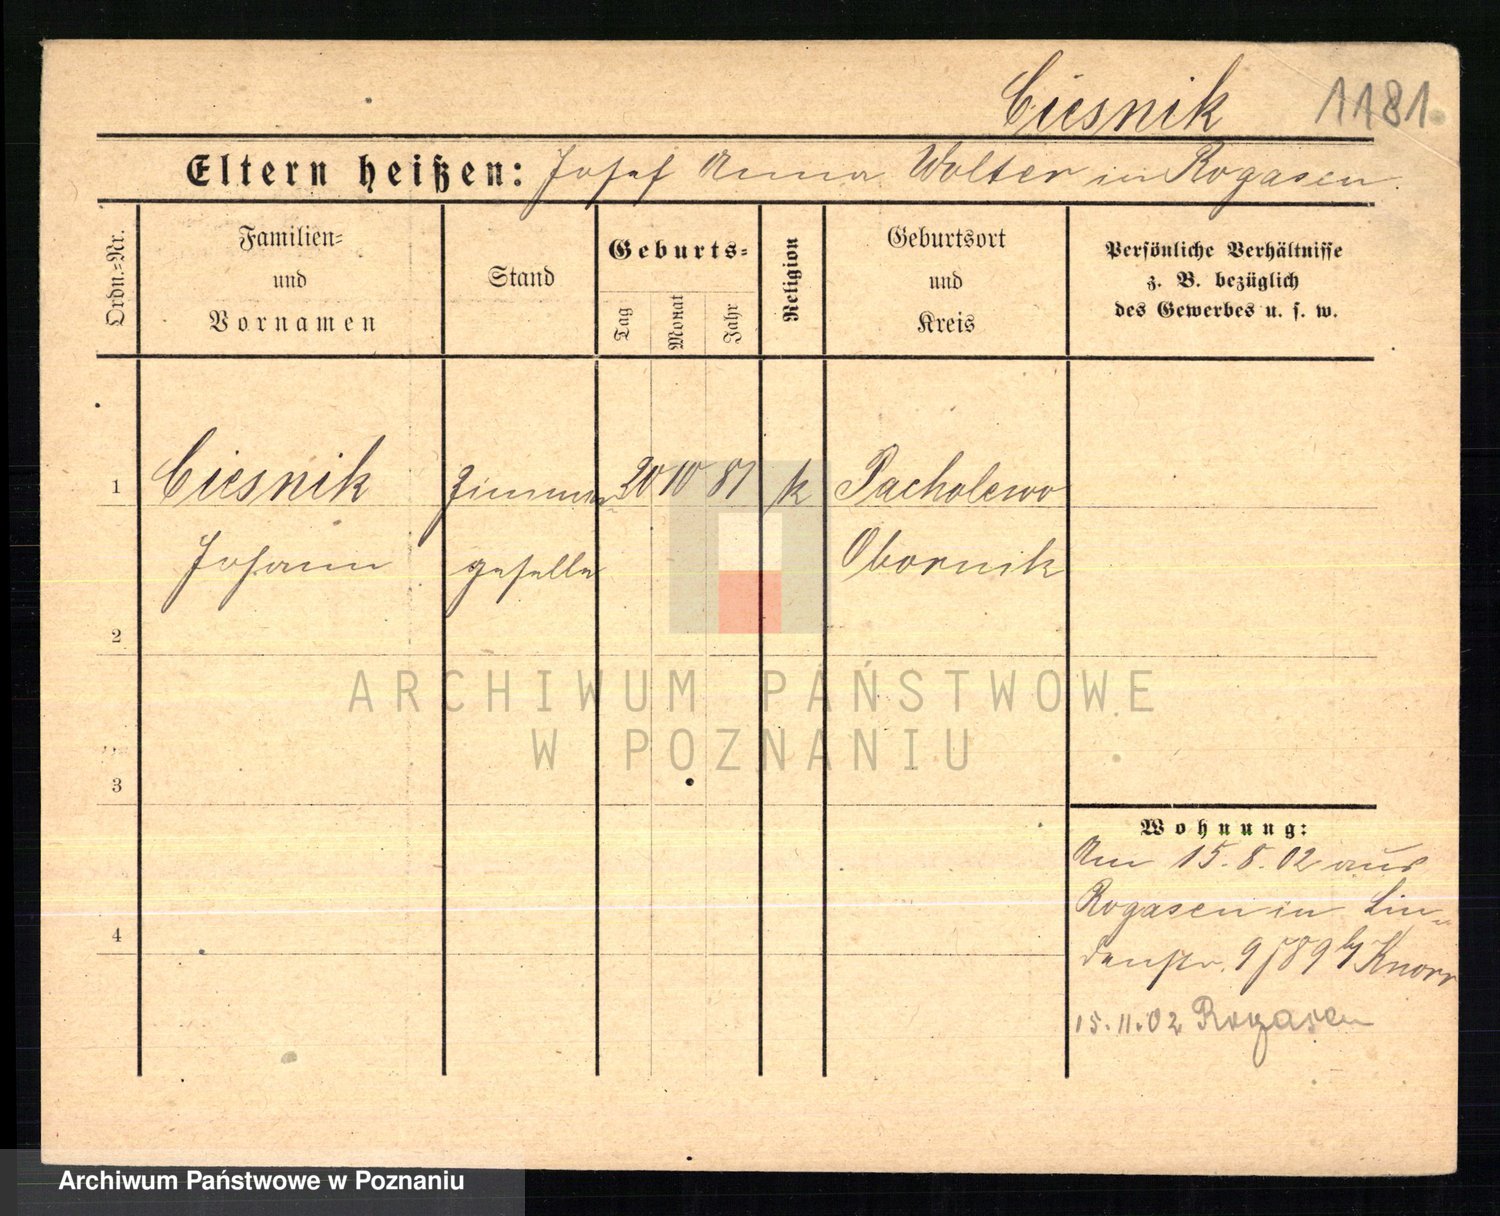 Ciesnik 1181.
Eltern heißen: Josef Anna Wolter in Rogasen.
Ordn.=Nr.
Familien=
und
Vornamen
Stand
Geburts=
Tag
Monat
Jahr
Religion
Geburtsort
und
Kreis
Persönliche Verhältnisse
z. B. bezüglich
des Gewerbes u. s. w.
1 Ciesnik Zimmer= 20 10 81 k Pacholewo
Johann geselle Obornik
2
3
4
Wohnung:
Am 15.8.02 aus
Rogasen in Lin=
denstr. 9 b/ Knorr
15.11.02 Rogasen
ARCHIWUM PAŃSTWOWE
W POZNANIU
Archiwum Państwowe w Poznaniu